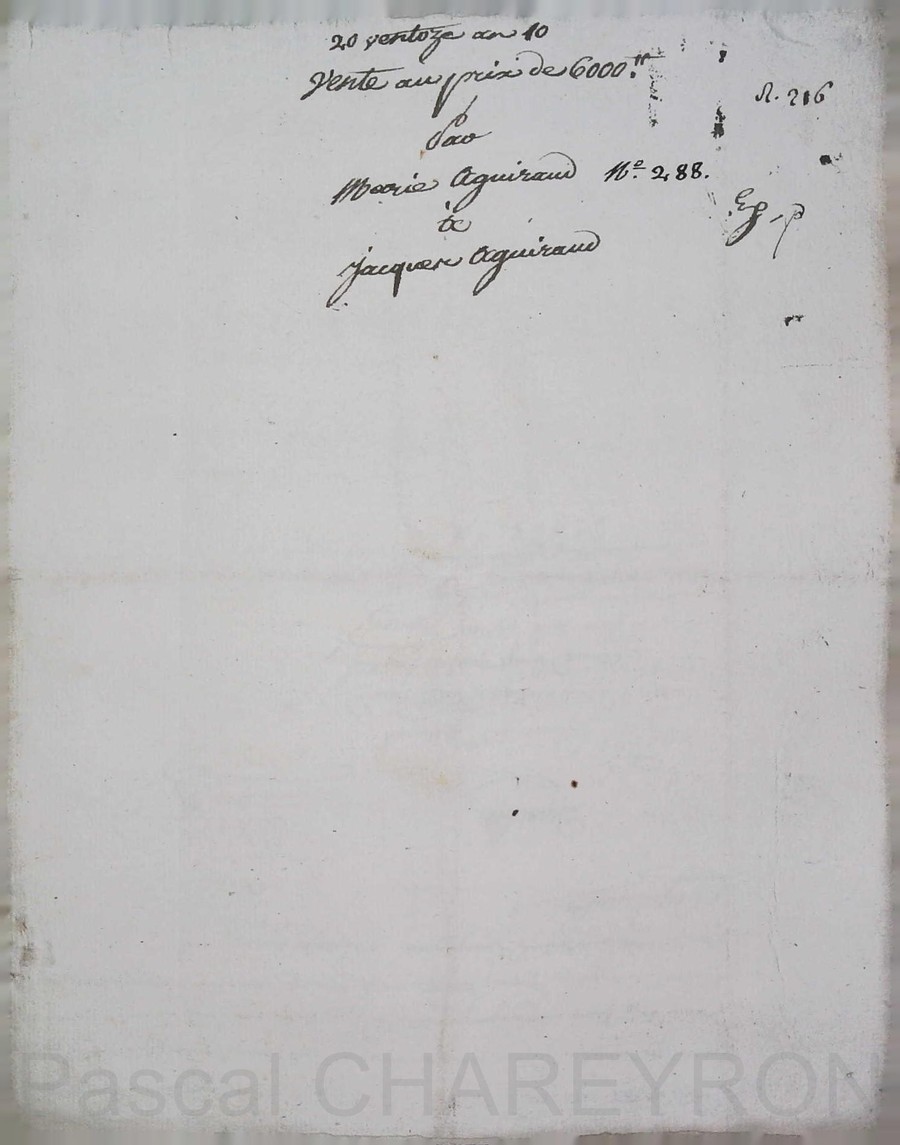 20 ventoze an 10
Vente au prix de 6000.tt
R. 216
Par
Marie Aguiraud N.o 288.
a
Jacques Aguiraud
Pascal CHAREYRON